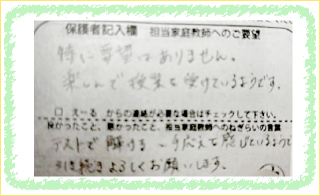 保護者記入欄 担当家庭教師へのご要望
特に要望はありません。
楽しんで授業を受けているようです。
□ えーる からの連絡が必要な場合はチェックして下さい。
良かったこと、聴かったこと、担当家庭教師へのねぎらいの言葉
テストで解ける 手応えを感じているようで
引き続きよろしくお願いします。